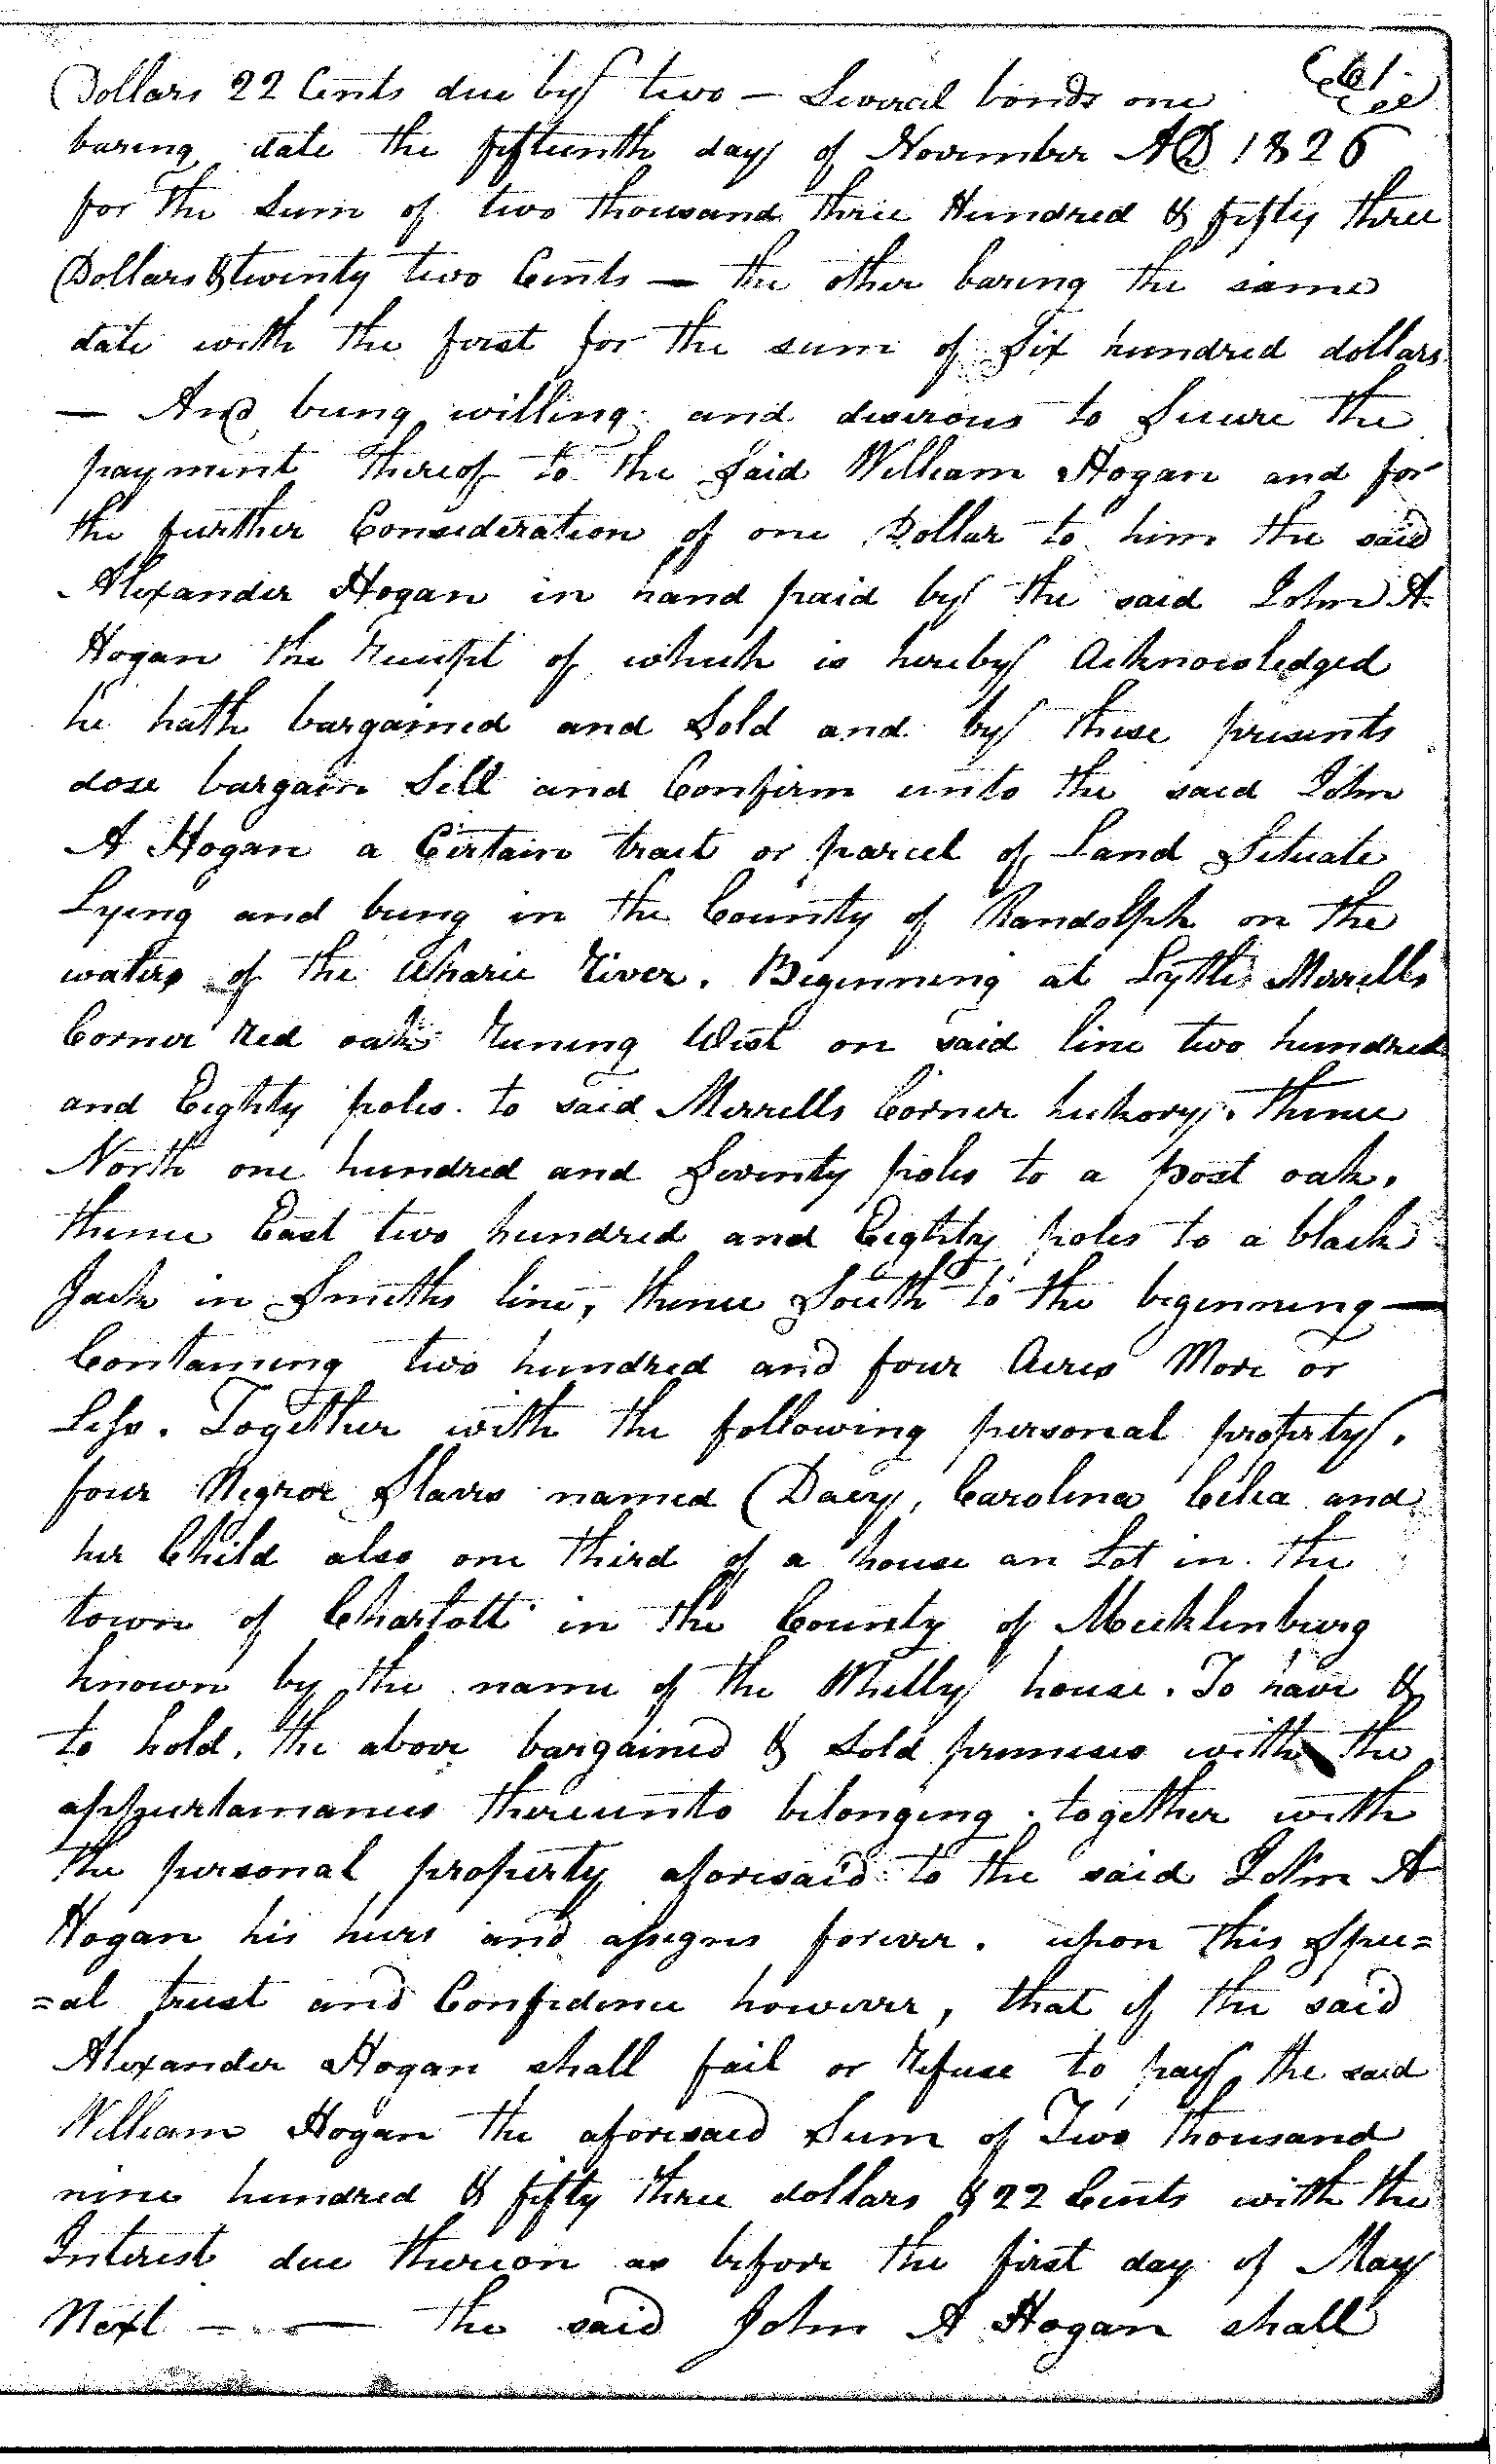 Dollars 22 Cents due by two — Several bonds one
baring date the fifteenth day of November AD 1826
for the Sum of two thousand three Hundred & fifty three
Dollars & twenty two Cents — the other baring the same
date with the first for the sum of Six hundred dollars
— And being willing and desirous to Secure the
payment thereof to the Said William Hogan and for
the further Consideration of one Dollar to him the said
Alexander Hogan in hand paid by the said John A
Hogan the receipt of which is hereby Acknowledged
he hath bargained and Sold and by these presents
dose bargain Sell and Confirm unto the said John
A Hogan a Certain tract or parcel of Land Situate
Lying and being in the County of Randolph on the
waters of the Uharie River. Beginning at Lyttle Merrells
Corner Red oak runing West on said line two hundred
and Eighty poles. to said Merrells Corner hickory. thence
North one hundred and Seventy poles to a post oak.
thence East two hundred and Eighty poles to a black
Jack in Smiths line, thence South to the beginning —
Containing two hundred and four Acres More or
Less. Together with the following personal property.
four Negroe Slaves named Dacy, Carolina Celia and
her Child also one third of a house an Lot in the
town of Charlott in the County of Mecklenburg
known by the name of the house. To have &
to hold. the above bargained & Sold premises with the
appurtamances thereunto belonging. together with
the personal property aforesaid to the said John A
Hogan his heirs and assigns forever. upon this Spec=
=al trust and Confidence however, that if the said
Alexander Hogan shall fail or refuse to pay the said
William Hogan the aforesaid Sum of Two thousand
nine hundred & fifty three dollars & 22 Cents with the
Interest due thereon as before the first day of May
Next — — the said John A Hogan shall